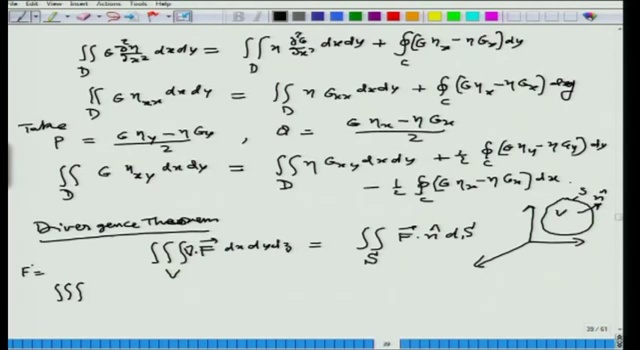 ∬_D G ∂²η/∂x² dxdy = ∬_D η ∂²G/∂x² dxdy + ∮_C (Gη_x − ηG_x) dy
∬_D G η_xx dxdy = ∬_D η G_xx dxdy + ∮_C (Gη_x − ηG_x) dy
Take P = (Gη_y − ηG_y)/2 , Q = (Gη_x − ηG_x)/2
∬_D G η_xy dxdy = ∬_D η G_xy dxdy + ½ ∮_C (Gη_y − ηG_y) dy
− ½ ∮_C (Gη_x − ηG_x) dx.
Divergence Theorem
∭_V ∇·F⃗ dxdydz = ∬_S F⃗·n̂ dS
V S n̂
F =
∭
23 / 61
49